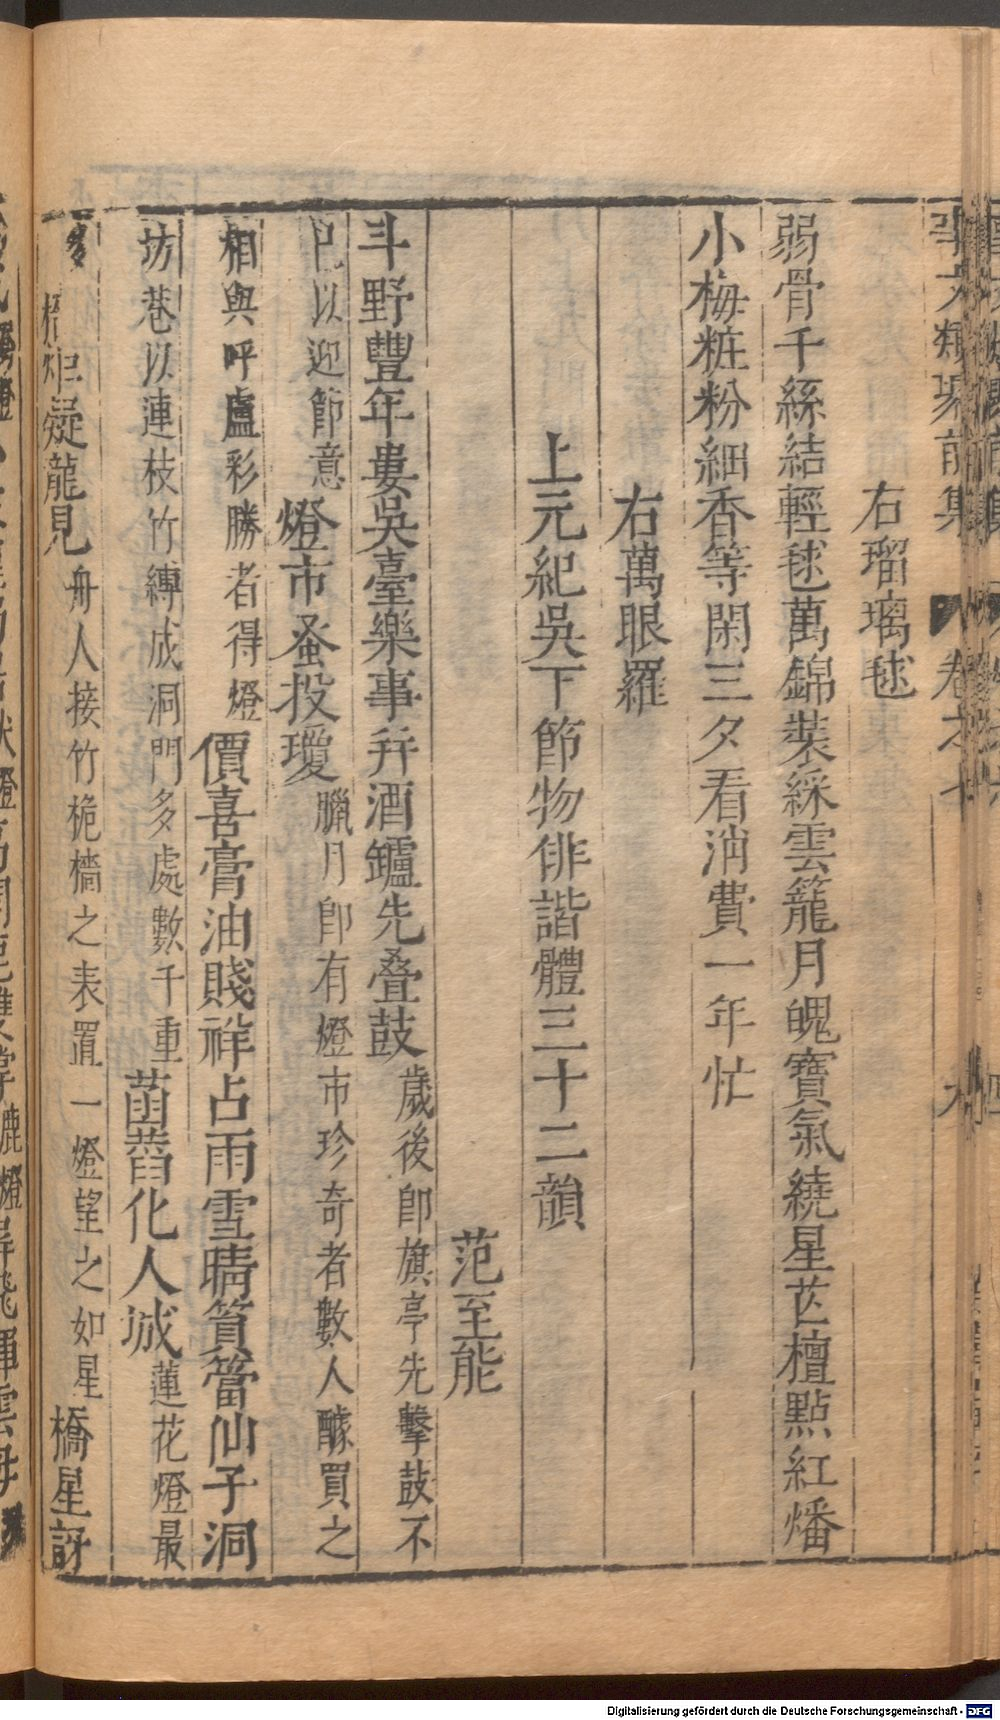 事文類聚前集　卷之七
右瑠璃毬
弱骨千絲結輕毬萬錦裝綵雲籠月魄寶氣繞星芒檀點紅燔
小梅粧粉細香等閑三夕看消費一年忙
右萬眼羅
上元紀吳下節物俳諧體三十二韻
范至能
斗野豐年婁吳臺樂事并酒鑪先叠鼓歲後即旗亭先擊鼓不
已以迎節意燈市蚤投瓊臘月即有燈市珍奇者數人醵買之
相與呼盧彩勝者得燈價喜膏油賤祥占雨雪晴篔簹仙子洞
坊巷以連枝竹縛成洞門多處數千重菡萏化人城蓮花燈最
多檣炬疑龍見舟人接竹桅檣之表置一燈望之如星橋星訝
Digitalisierung gefördert durch die Deutsche Forschungsgemeinschaft - DFG